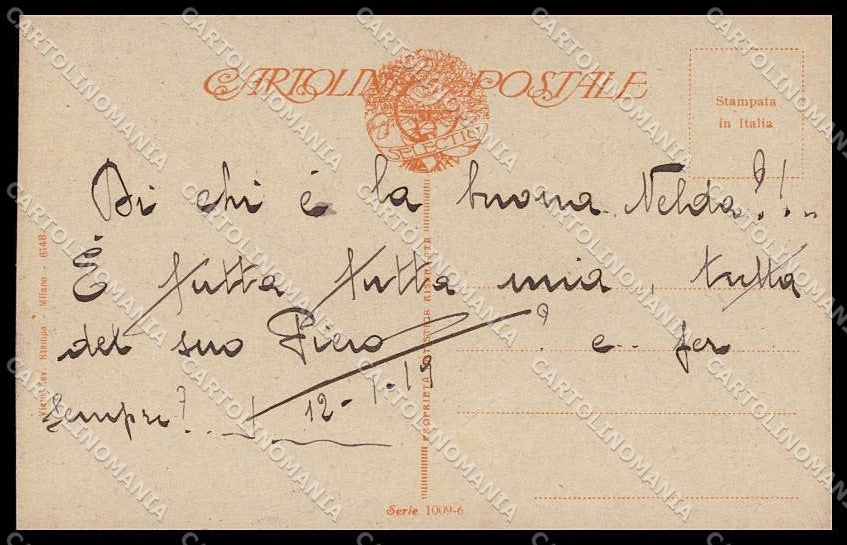 CARTOLINA POSTALE
SELECTIO
Stampata
in Italia
Di chi è la buona Nelda?!..
È tutta tutta mia, tutta
del suo Piero ? e.. per
sempre?..!
12-1-19
Rev. Stampa - Milano - 6148
PROPRIETÀ ARTISTICA RISERVATA
Serie 1009-6
CARTOLINOMANIA